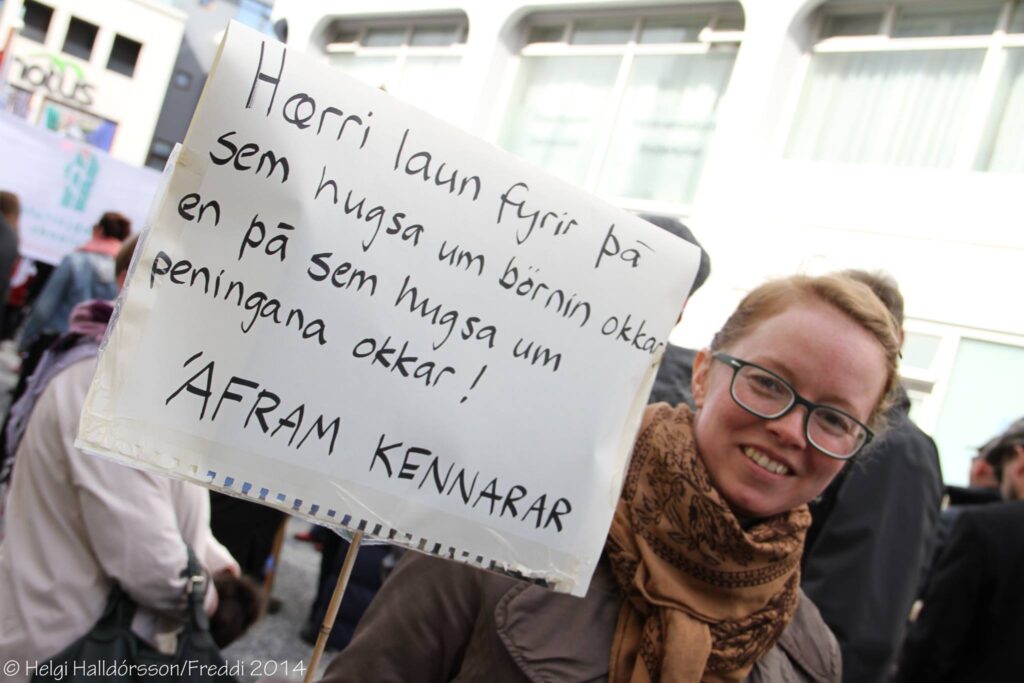 nokus
Hærri laun fyrir þá
sem hugsa um börnin okkar
en þá sem hugsa um
peningana okkar!
ÁFRAM KENNARAR
© Helgi Halldórsson/Freddi 2014